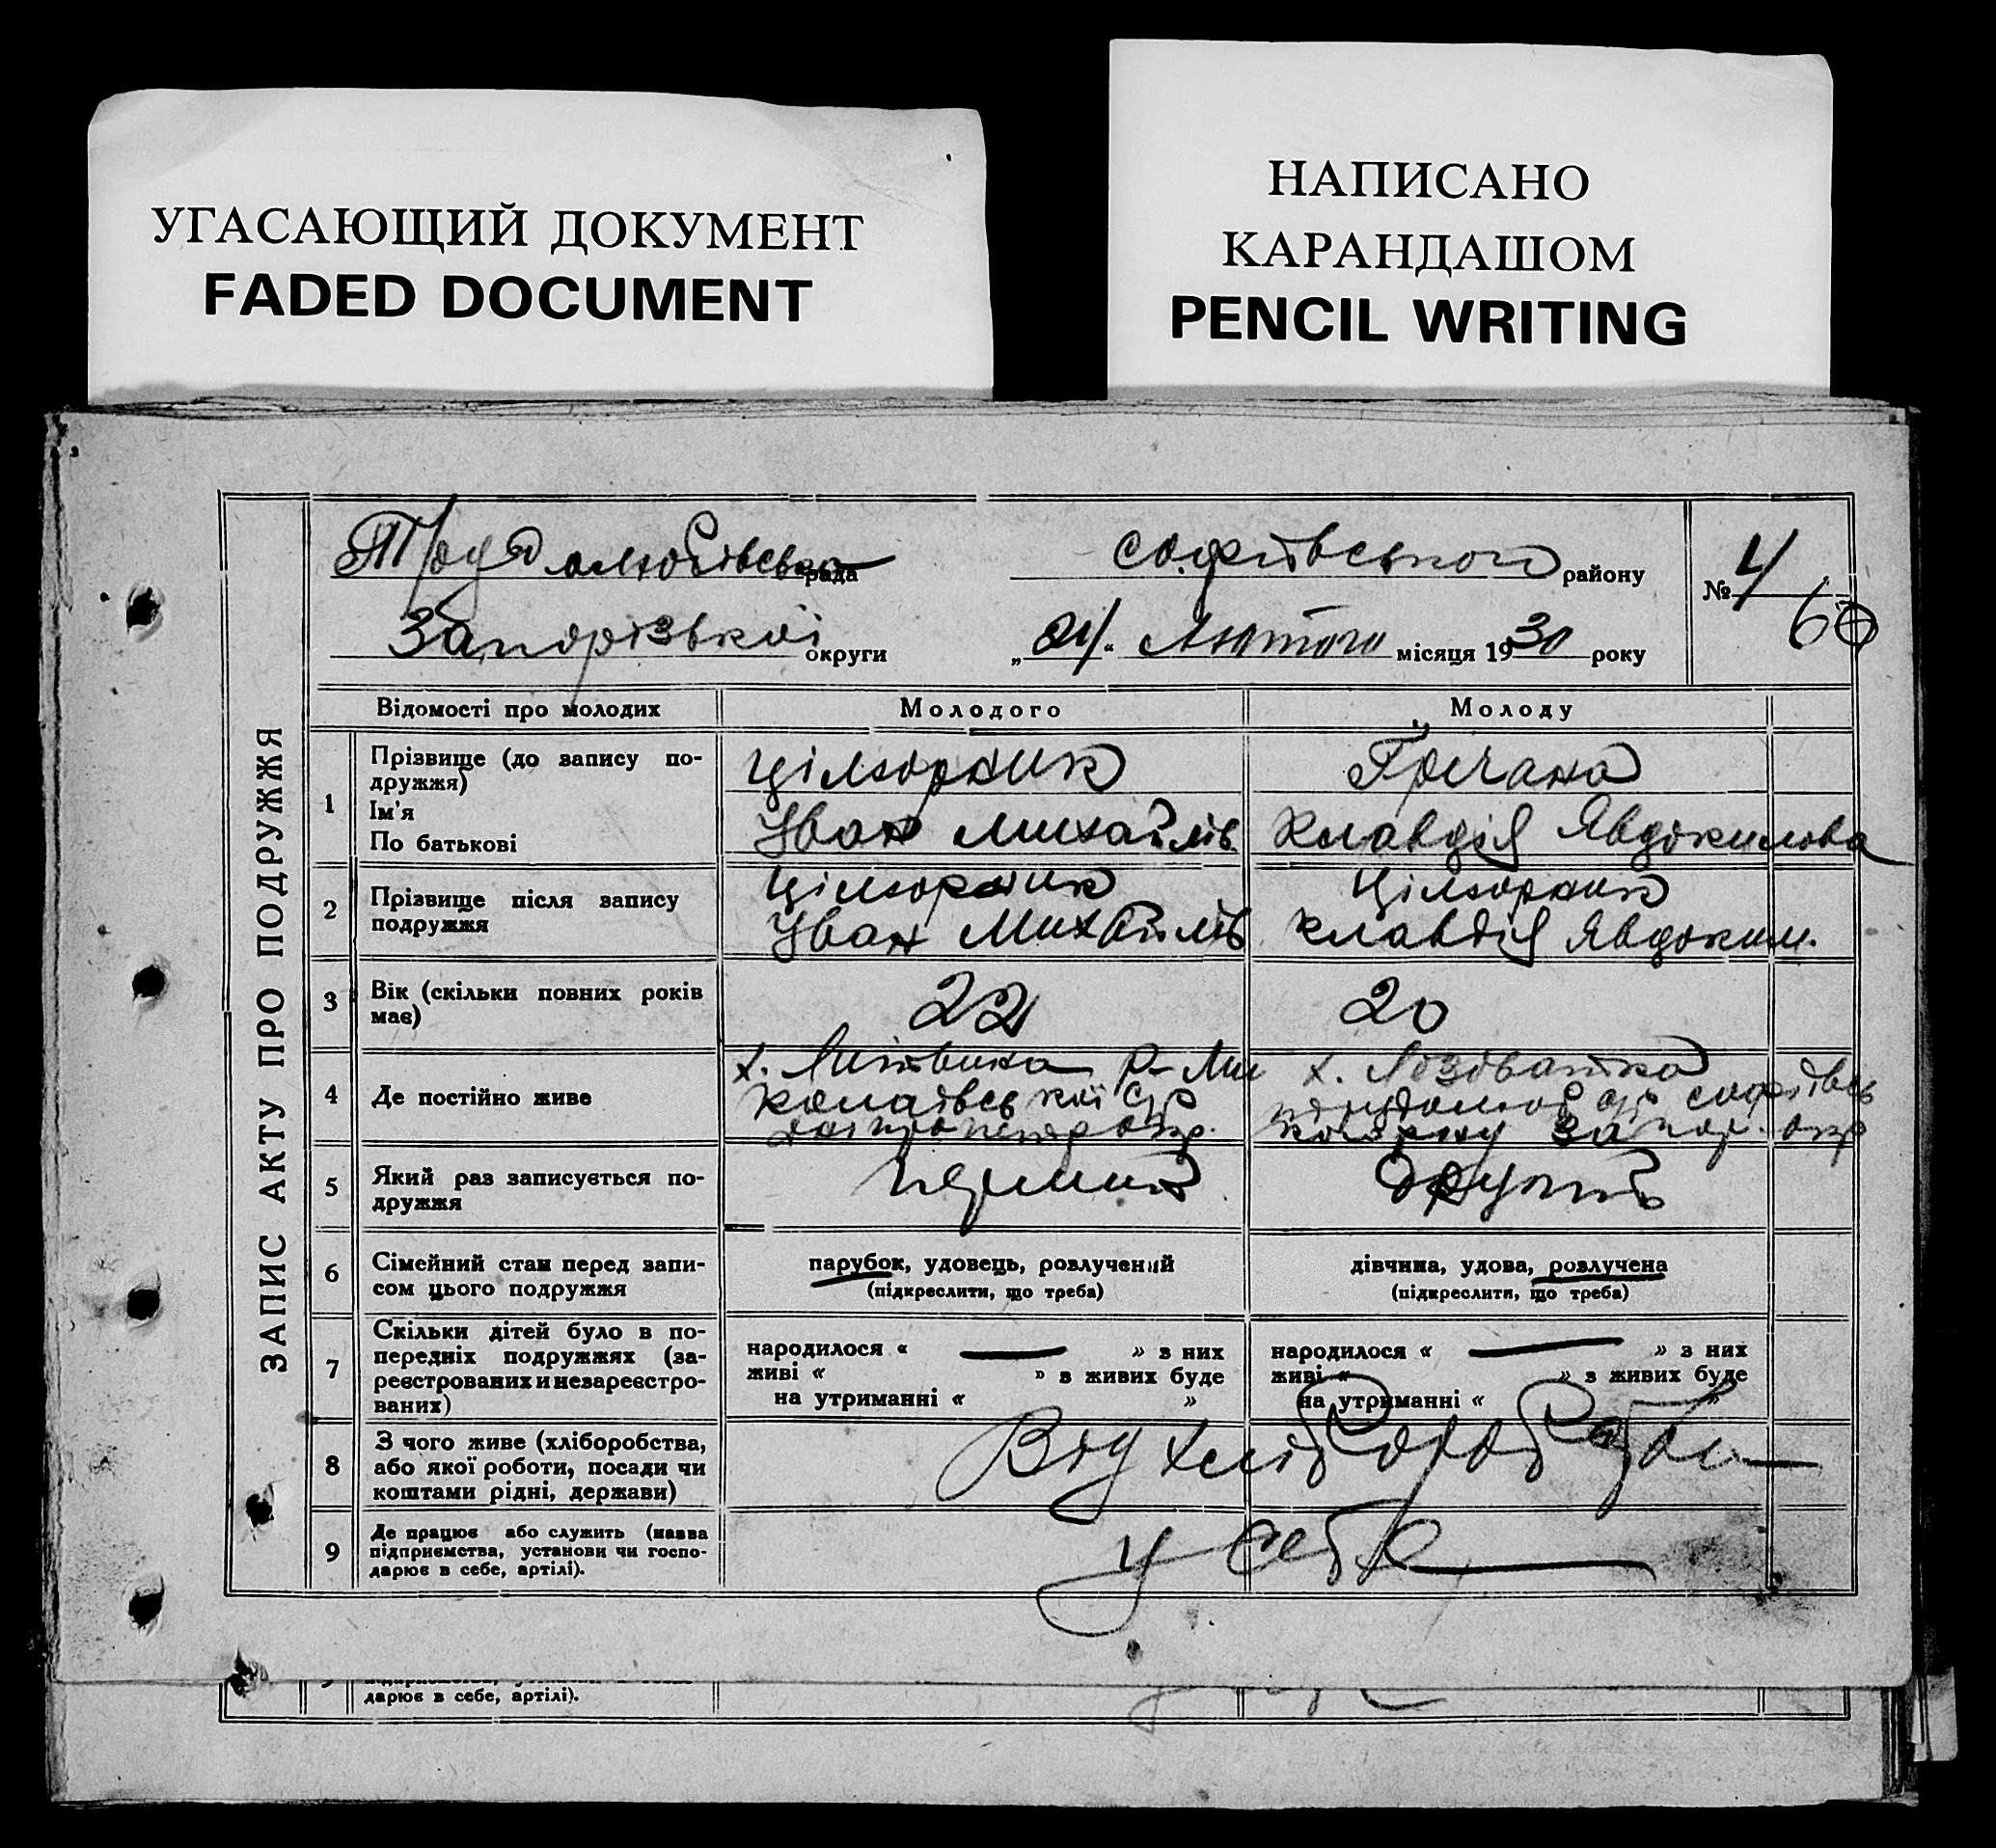 УГАСАЮЩИЙ ДОКУМЕНТ
FADED DOCUMENT
НАПИСАНО
КАРАНДАШОМ
PENCIL WRITING
ЗАПИС АКТУ ПРО ПОДРУЖЖЯ
Трудолюбівська рада софіївського району № 4
60
Запорізької округи „ 21 “ Лютого місяця 1930 року
Відомості про молодих Молодого Молоду
1 Прізвище (до запису по-
дружжя)
Ім'я
По батькові
Цілюрник
Іван Михайлів
Гречана
Клавдія Явдокимова
2 Прізвище після запису
подружжя
Цілюрник
Іван Михайлів
Цілюрник
Клавдія Явдоким.
3 Вік (скільки повних років
має)
22
20
4 Де постійно живе
х. Ми
колаївської с/р
х. Лозоватка
софіївсь
кого рну Запор. окр
5 Який раз записується по-
дружжя
перший
другий
6 Сімейний стан перед запи-
сом цього подружжя
парубок, удовець, розлучений
(підкреслити, що треба)
дівчина, удова, розлучена
(підкреслити, що треба)
7 Скільки дітей було в по-
передніх подружжях (за-
реєстрованих и незареєстро-
ваних)
народилося « — » з них
живі « » в живих буде
на утриманні « »
народилося « — » з них
живі « » в живих буде
на утриманні « »
8 З чого живе (хліборобства,
або якої роботи, посади чи
коштами рідні, держави)
Від хліборобства
9 Де працює або служить (назва
підприємства, установи чи госпо-
дарює в себе, артілі).
у себе
дарює в себе, артілі).